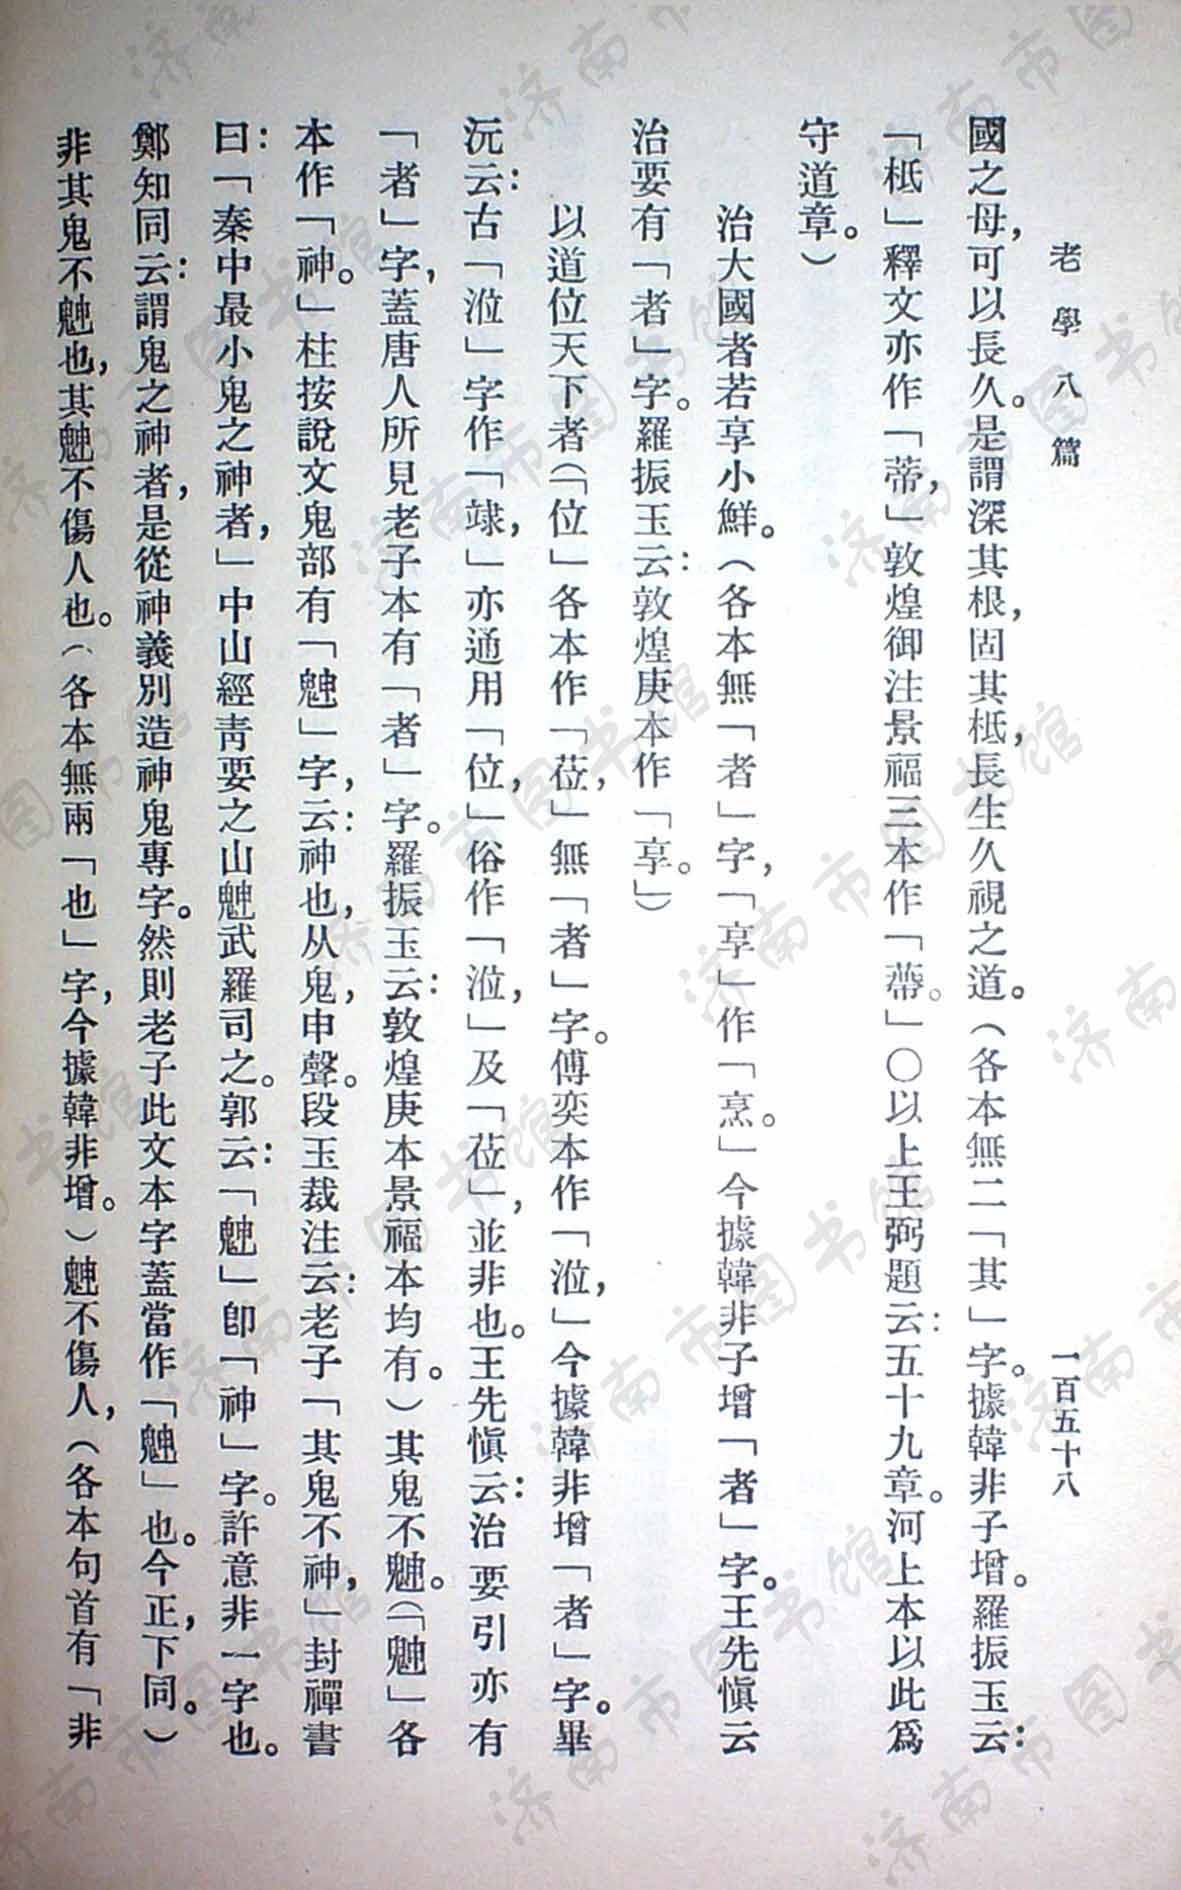 老學八篇
一百五十八
國之母，可以長久。是謂深其根，固其柢，長生久視之道。（各本無二「其」字。據韓非子增。羅振玉云：
「柢」釋文亦作「蒂，」敦煌御注景福三本作「蔕。」〇以上王弼題云：五十九章。河上本以此爲
守道章。）
治大國者若亨小鮮。（各本無「者」字，「亨」作「烹。」今據韓非子增「者」字。王先愼云
治要有「者」字。羅振玉云：敦煌庚本作「亨。」）
以道位天下者（「位」各本作「莅，」無「者」字。傅奕本作「涖，」今據韓非增「者」字。畢
沅云：古「涖」字作「䇐，」亦通用「位，」俗作「涖，」及「莅」，並非也。王先愼云：治要引亦有
「者」字，蓋唐人所見老子本有「者」字。羅振玉云：敦煌庚本景福本均有。）其鬼不䰠。（「䰠」各
本作「神。」柱按說文鬼部有「䰠」字，云：神也，从鬼，申聲。段玉裁注云：老子「其鬼不神，」封禪書
曰：「秦中最小鬼之神者，」中山經靑要之山䰠武羅司之。郭云：「䰠」卽「神」字。許意非一字也。
鄭知同云：謂鬼之神者，是從神義別造神鬼專字。然則老子此文本字蓋當作「䰠」也。今正，下同。）
非其鬼不䰠也，其䰠不傷人也。（各本無兩「也」字，今據韓非增。）䰠不傷人，（各本句首有「非
济南市图书馆